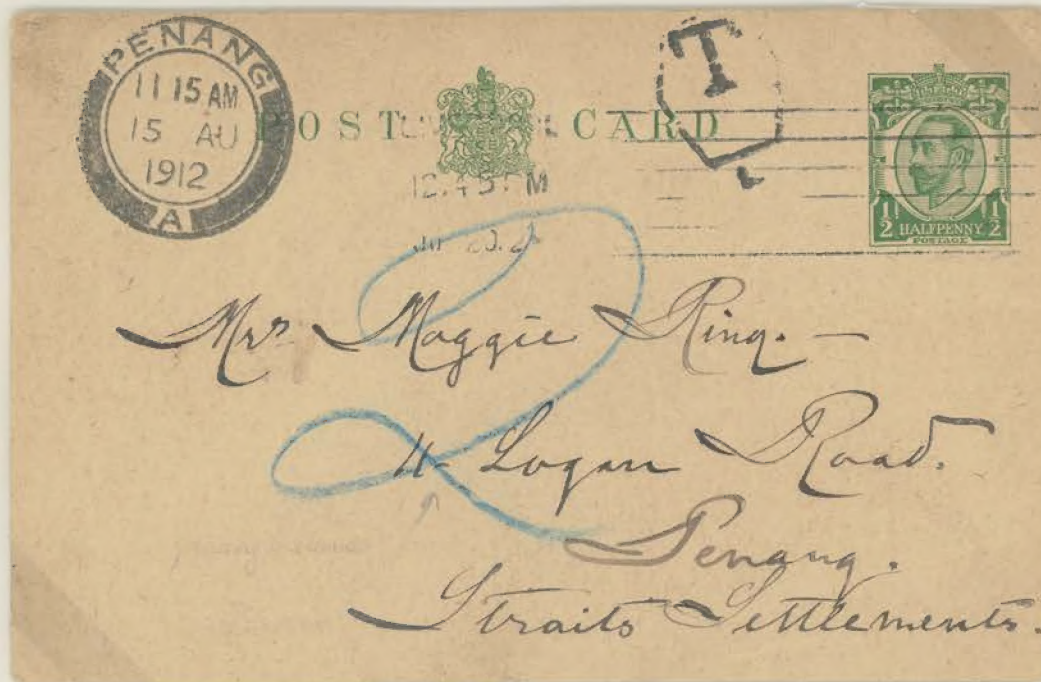 PENANG
11 15 AM
15 AU
1912
A
POST CARD
T
12.45 PM
1/2 HALFPENNY 1/2
POSTAGE
2
Mrs Maggie Ring. —
4 Logan Road.
Penang.
Straits Settlements.